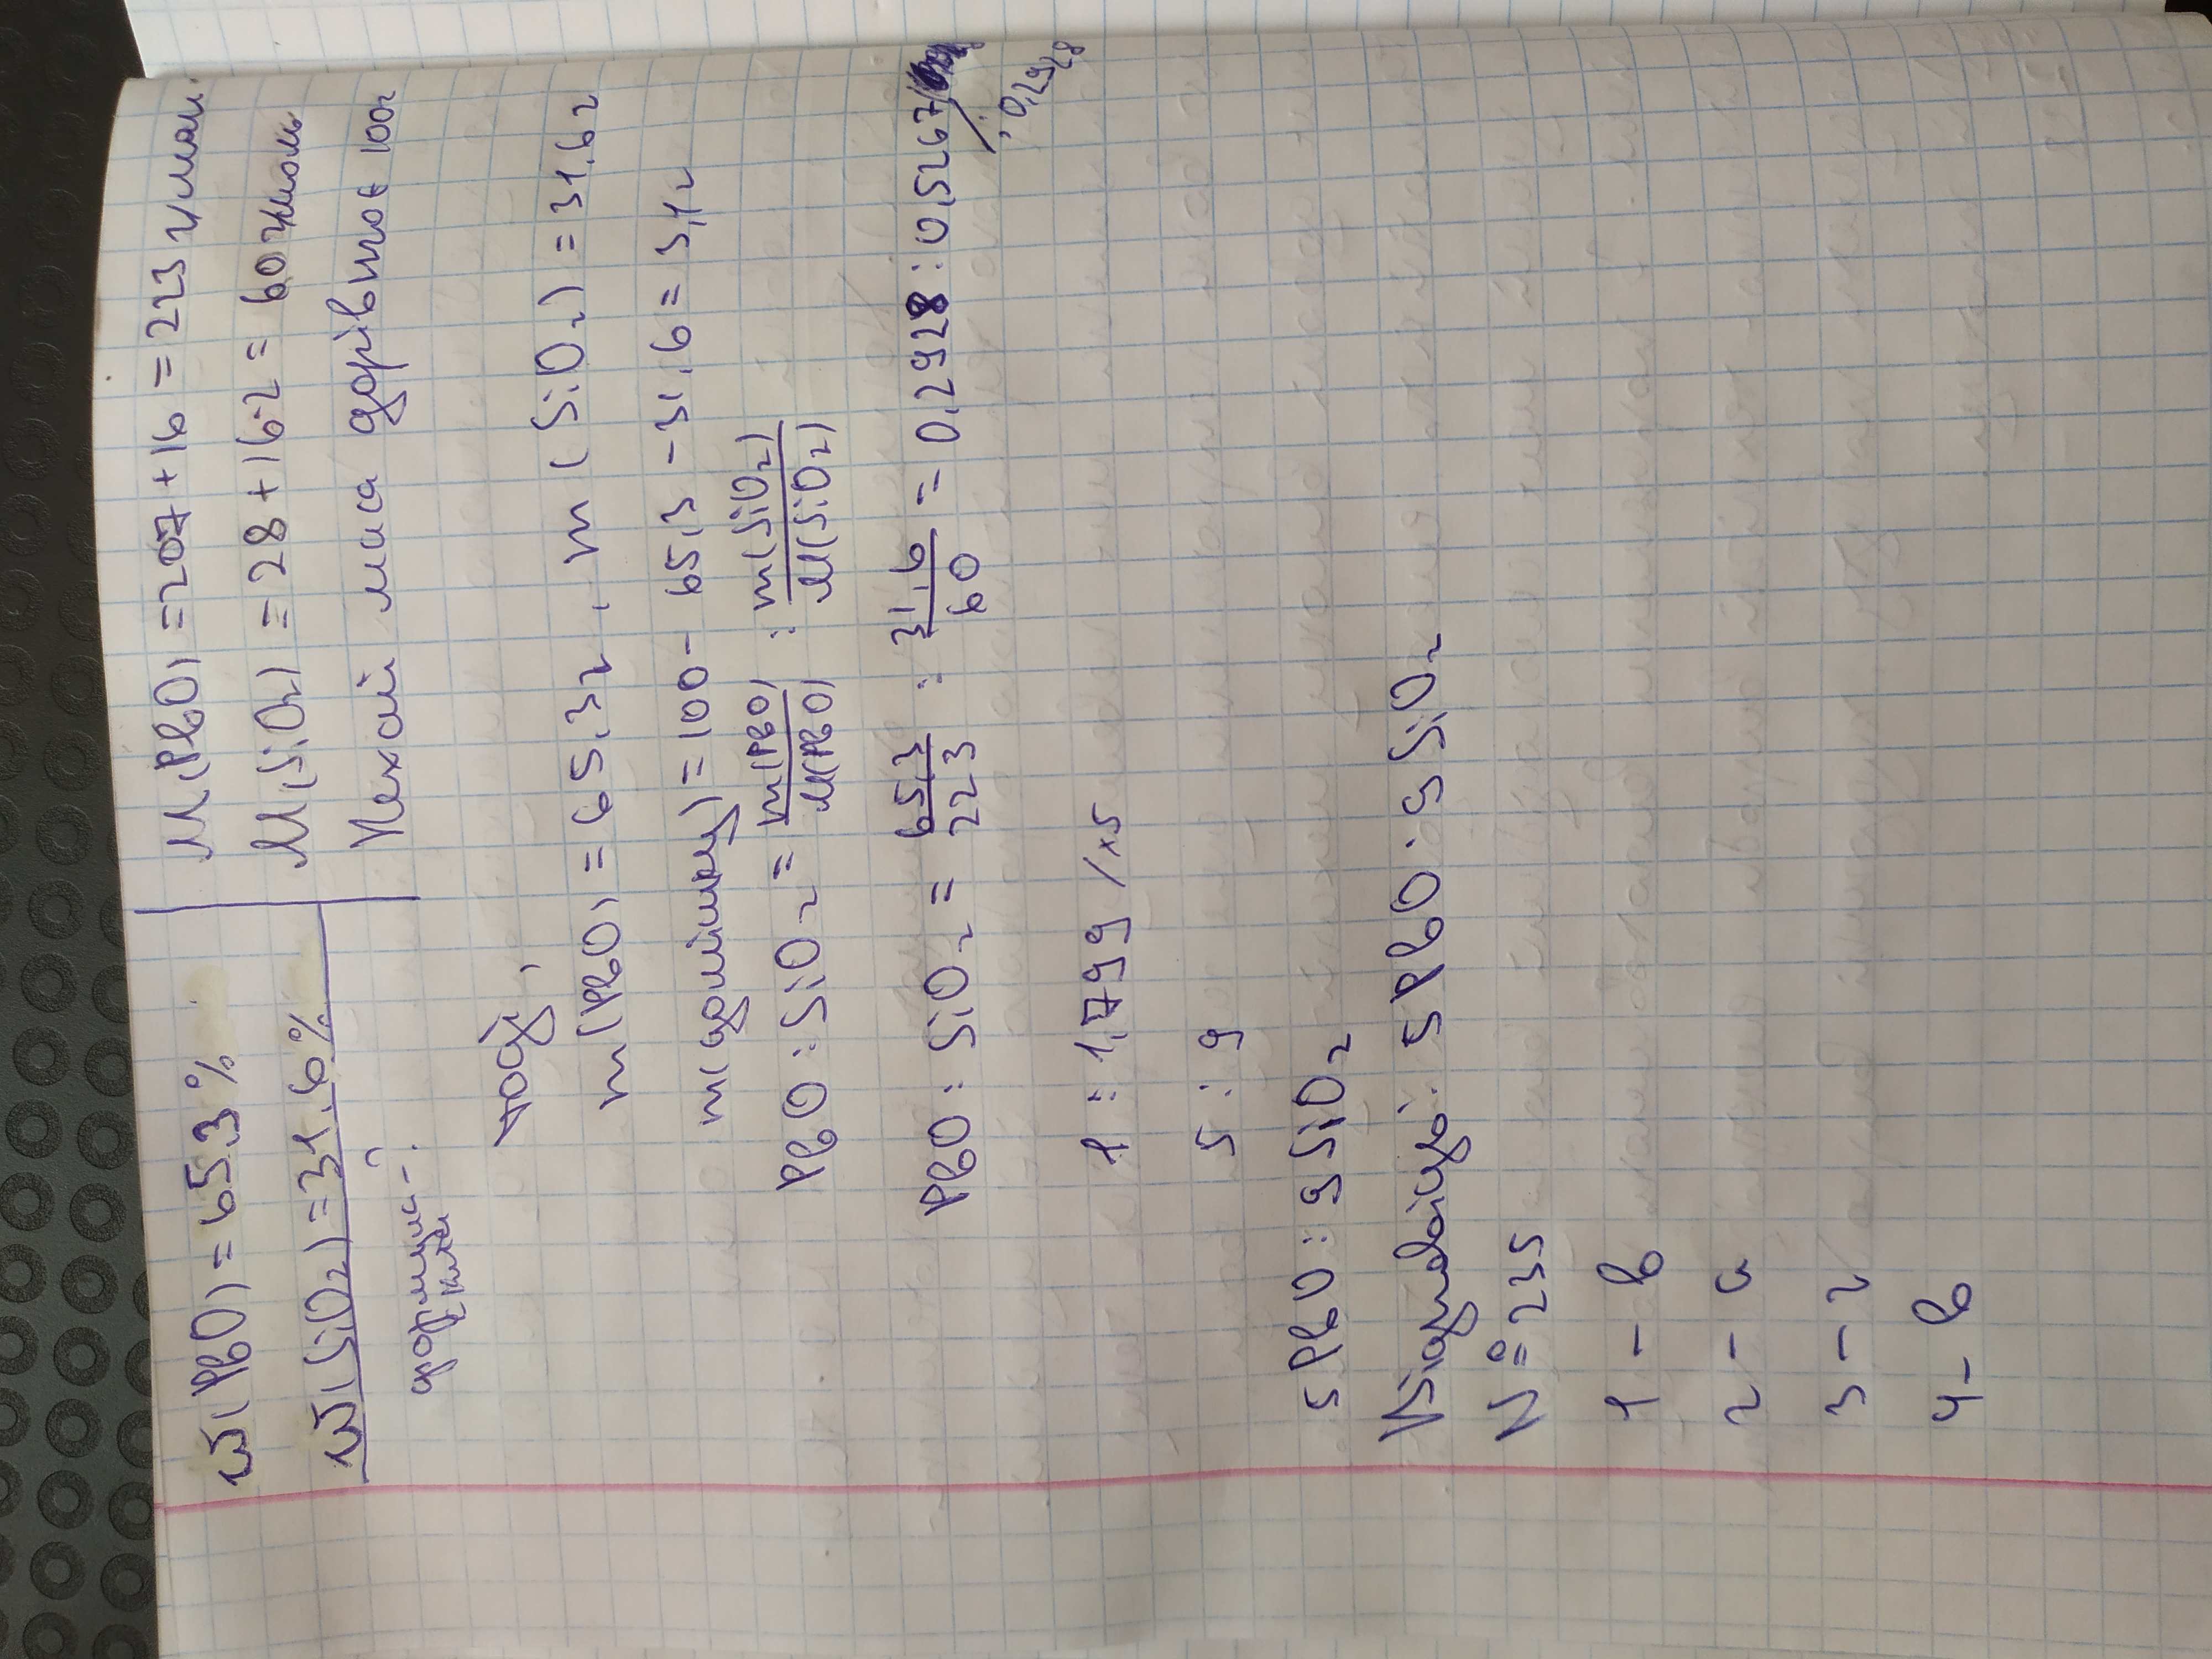 W(PbO) = 65.3%
W(SiO2) = 31.6%
формула скла - ?
M(PbO) = 207 + 16 = 223 г/моль
M(SiO2) = 28 + 16·2 = 60 г/моль
Нехай маса дорівнює 100г
тоді,
m(PbO) = 65.3г, m(SiO2) = 31.6г
m(домішки) = 100 - 65,3 - 31.6 = 3,1г
PbO : SiO2 = m(PbO)/M(PbO) : m(SiO2)/M(SiO2)
PbO : SiO2 = 65,3/223 : 31,6/60 = 0,2928 : 0,5267 / : 0,2928
1 : 1,799 /×5
5 : 9
5 PbO : 9 SiO2
Відповідь: 5 PbO · 9 SiO2
№ 235
1 - в
2 - а
3 - г
4 - в